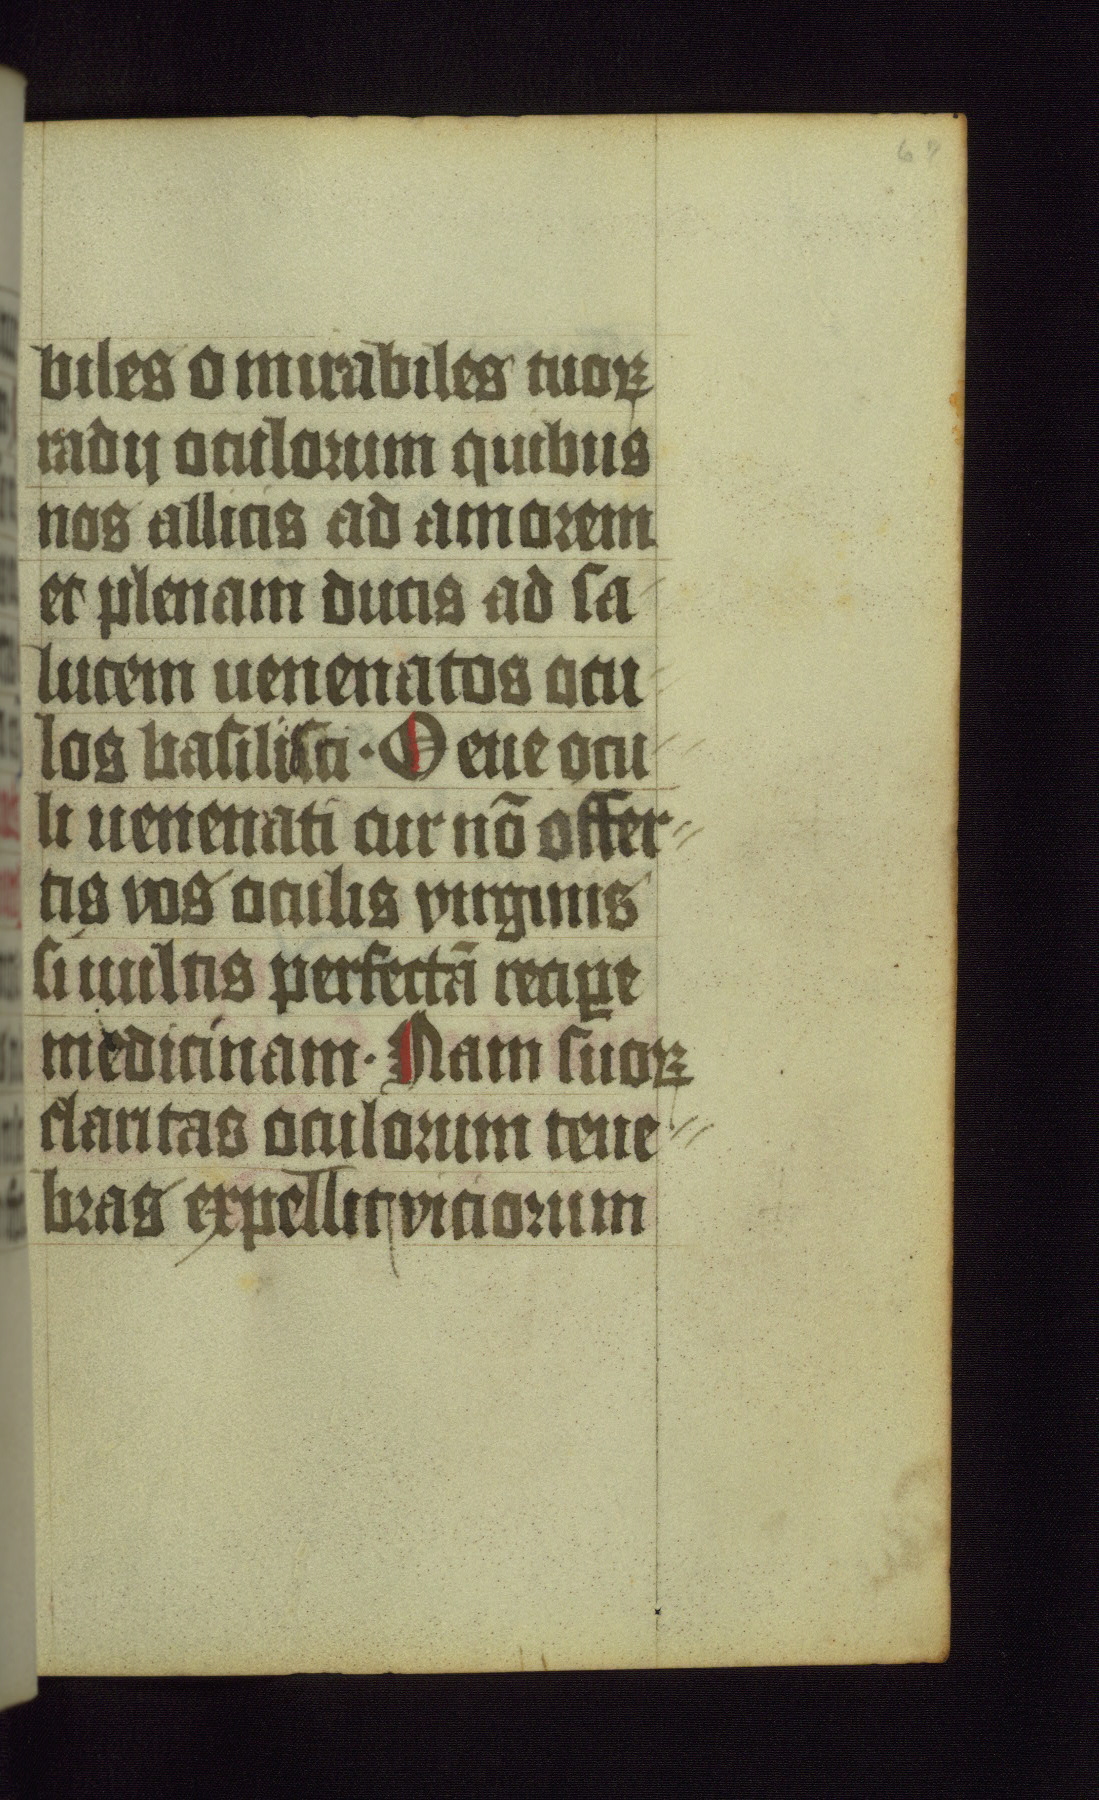 biles o mirabiles tuoꝝ
radij oculorum quibus
nos allicis ad amorem
et plenam ducis ad sa/
lutem uenenatos ocu//
los basilisci · O eue ocu//
li uenenati cur nō offer//
tis vos oculis virginis
si uultis perfectā reciꝑe
medicinam · Nam suoꝝ
claritas oculorum tene//
bras expellit viciorum